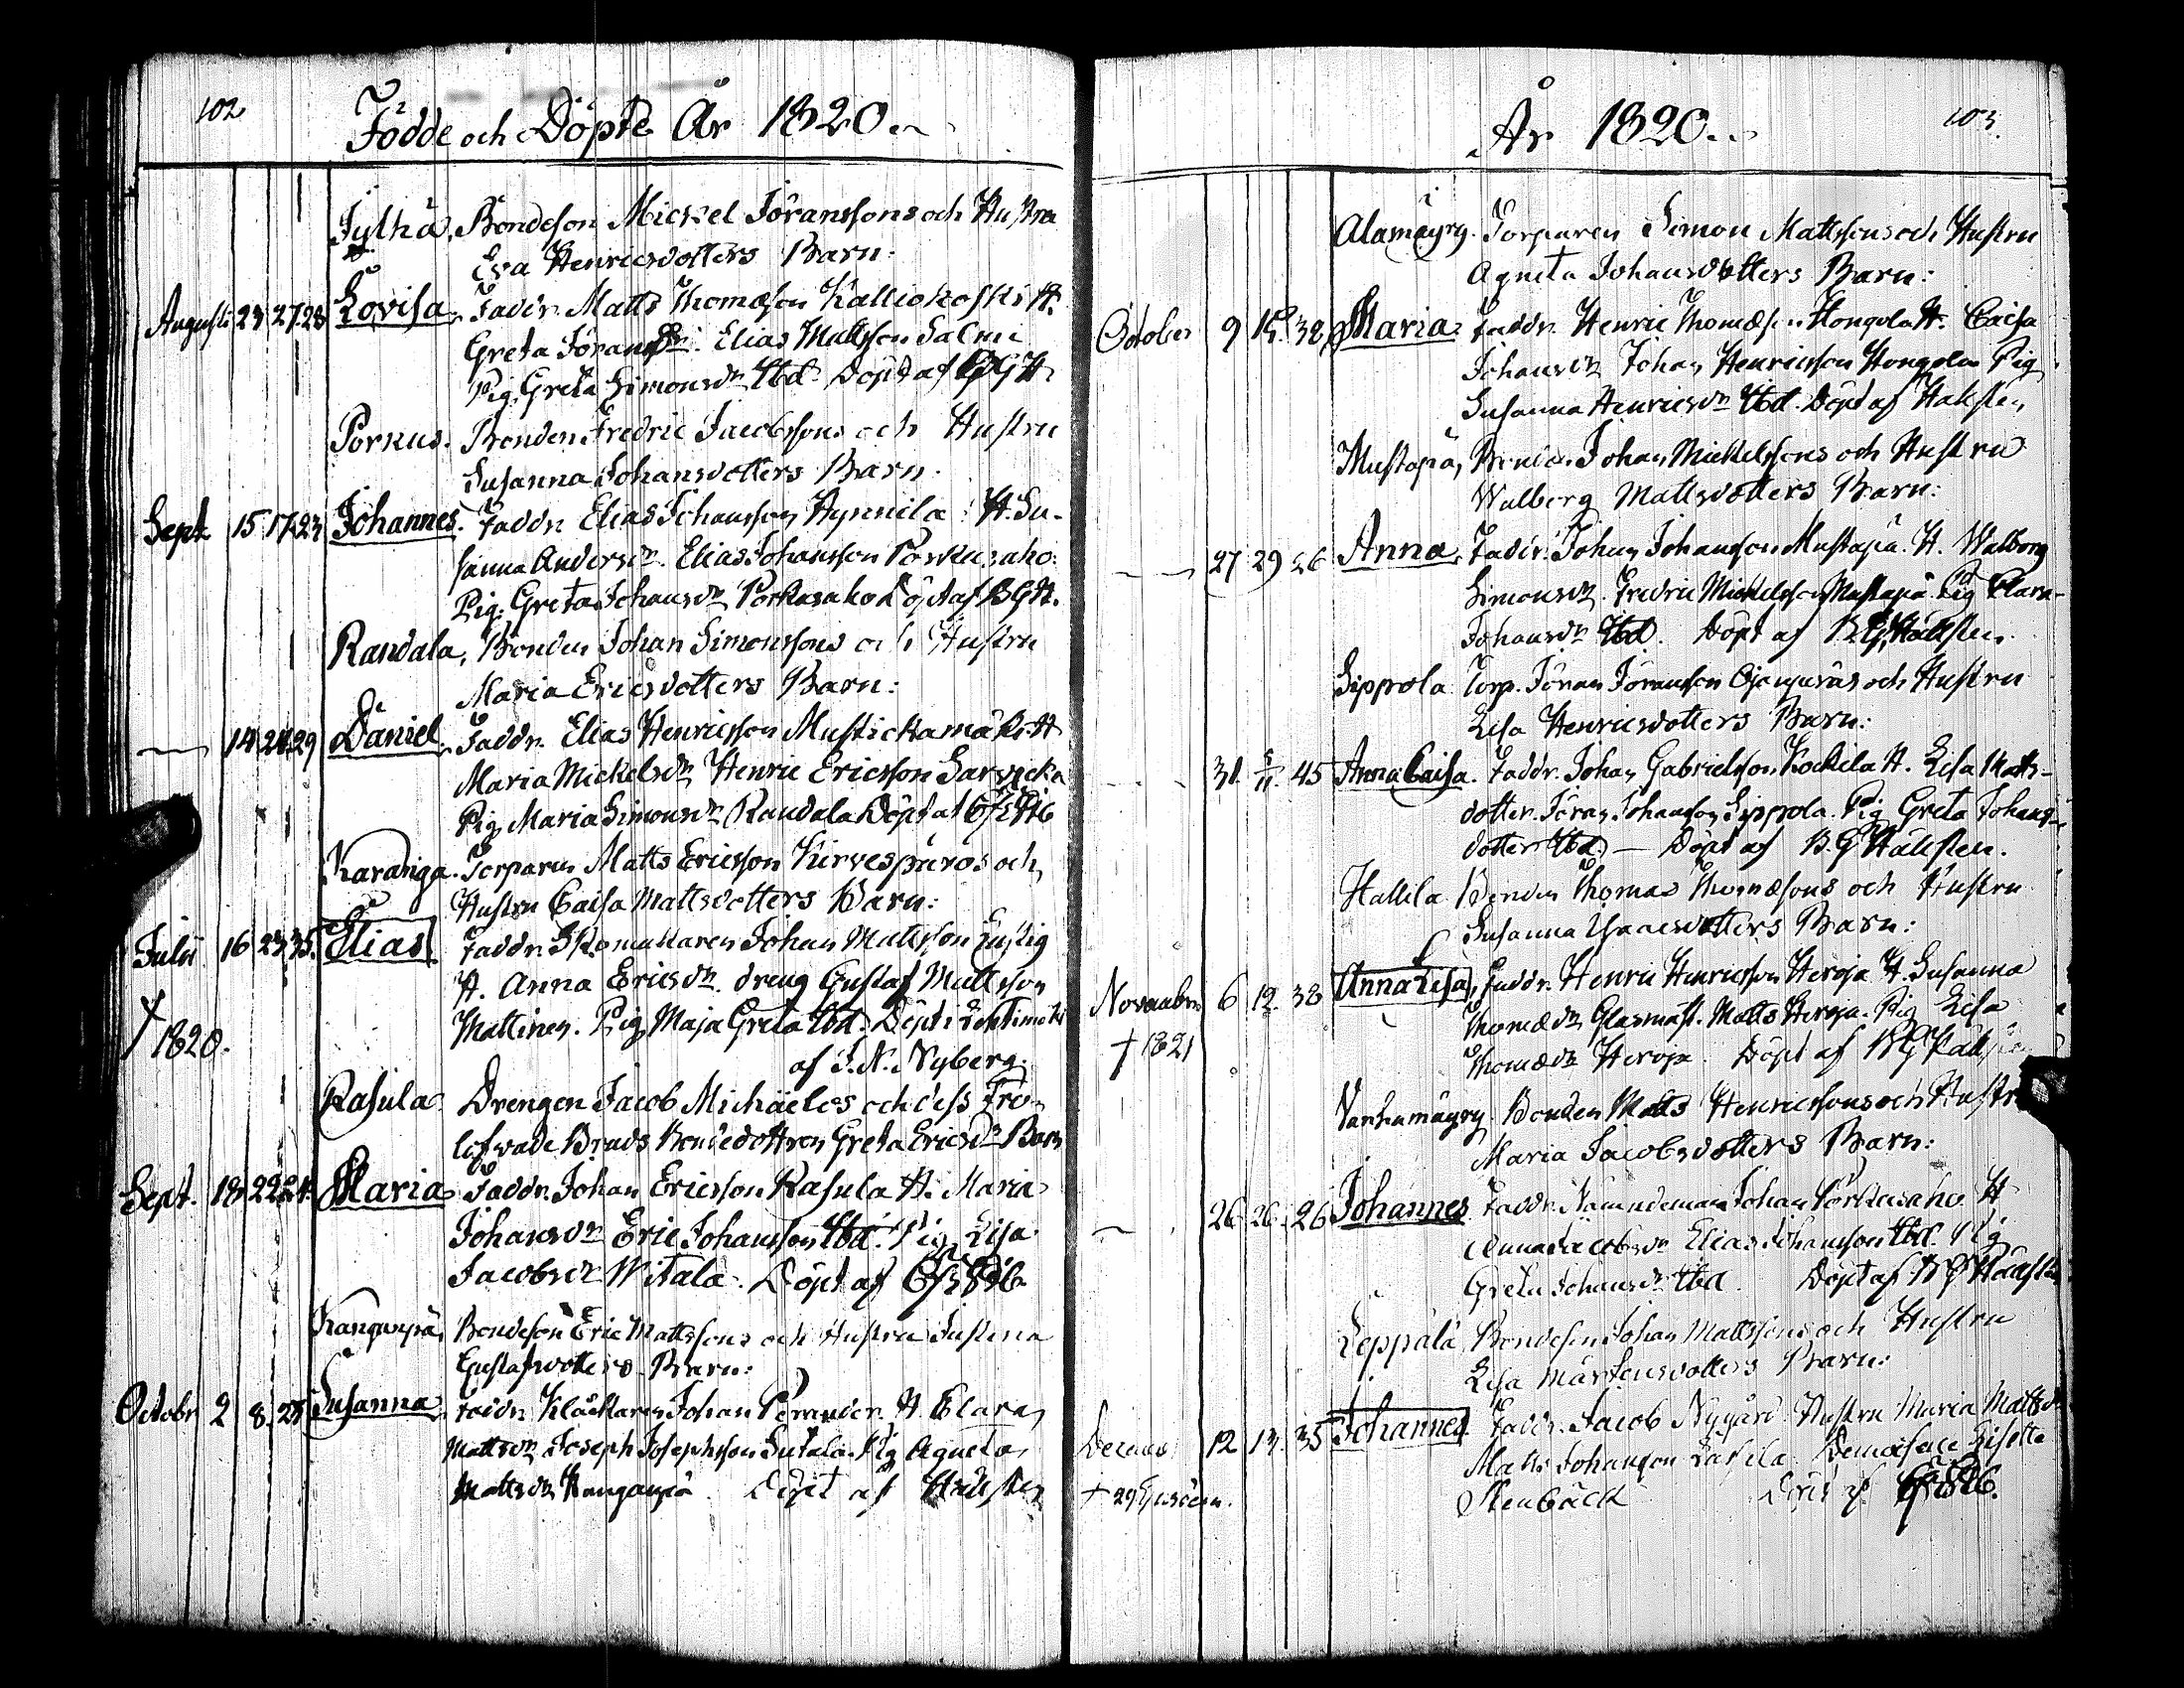 102
Födde och Döpte År 1820.
Jylhä. Bondeson Mickel Jöranssons och Hustru
Eva Henricsdotters Barn:
Augusti 23 27 28 Lovisa. Faddr. Matts Thomæson Kalliokoski H.
Greta Göransdr. Elias Mattsson Salmi
Pig. Greta Simonsdr Ibd. Döpt af BGH
Porkus. Bonden Fredric Jacobssons och Hustru
Susanna Johansdotters Barn.
Sept. 15 17 23 Johannes. Faddr. Elias Johansson Hynnilä H. Su-
sanna Andersdr. Elias Johansson Porkusaho.
Pig: Greta Johansdr Porkasaho Döpt af BGH.
Randala, Bonden Johan Simonssons och Hustru
Maria Ericsdotters Barn:
14 24 29 Daniel. Faddr. Elias Henricsson Mustickamäki H
Maria Mickelsdr Henric Ericsson Sarvicka
Pig. Maria Simonsdr Randala Döpt af
Karanga. Torparen Matts Ericsson Kirvespuros och
Hustru Caisa Mattsdotters Barn:
Julii 16 23 35. Elias. Faddr. Skomakaren Johan Mattsson Lustig
H. Anna Ericsdr. dreng Gustaf Mattsson
Mattinen. Pig. Maja Greta Ibd. Döpt i Lehtimäki
† 1820.
af J. N. Nyberg.
Rasula. Drengen Jacob Michaelos och dess Tro-
lofwade Bruds Bondedottren Greta Ericsdr Barn
Sept. 18 22 24. Maria. Faddr. Johan Ericsson Rasula H. Maria
Johansdr Eric Johansson Ibd. Pig. Lisa
Jacobsdr Witala. Döpt af
Kangaspä, Bondeson Eric Mattssons och Hustru Justina
Gustafsdotters Barn:
Octobr 2 8. 25 Susanna. Faddr. Klåckaren Johan Perander. H. Clara
Mattsdr Joseph Josephsson Sutala. Pig Agneta
Mattsdr Kangaspä. Döpt af Hällsten
103.
År 1820.
Alamäyry. Torparen Simon Mattssons och Hustru
Agneta Johansdotters Barn:
October 9 15. 38 Maria. Faddr. Henric Thomæson Hongola H. Caisa
Johansdr Johan Henricsson Hongola Pig
Susanna Henricsdr Ibd. Döpt af Hällsten
Mustapä, Bonden Johan Mickelssons och Hustru
Walberg Mattsdotters Barn:
27 29 26 Anna. Faddr. Johan Johansson Mustapä. H. Walborg
Simonsdr. Fredric Mickelsson Mustapä Pig Clara
Johansdr Ibd. Döpt af B.G. Hällsten.
Sippola Torp. Jöran Jöransson Ojanperäs och Hustru
Lisa Henricsdotters Barn:
31. 5/11. 45 Anna Caisa. Faddr. Johan Gabrielsson Kockila H. Lisa Matts-
dotter. Jöran Johansson Sippola. Pig Greta Johans-
dotter Ibd. — Döpt af B.G. Hällsten.
Hallila Bonden Thomas Thomæsons och Hustru
Susanna Isaacsdotters Barn:
November 6 12. 38 Anna Lisa, Faddr. Henric Henricsson Heroja H. Susanna
Thomædr Glasmäst. Matts Heroja. Pig Lisa
† 1821
Thomædr Heroja. Döpt af BG Hällsten
Vanhamäyry. Bonden Matts Henricssons och Hustru
Maria Jacobsdotters Barn:
26 26. 26 Johannes Faddr. Nämndeman Johan Porkusaho. H
Anna Jacobsdr Elias Johansson Ibd. Pig
Greta Johansdr Ibd Döpt af BG Hällsten
Leppälä Bondeson Johan Mattssons och Hustru
Lisa Mårtensdotters Barn:
Decemb 12 13. 35 Johannes. Faddr. Jacob Nygård. Hustru Maria Mattsdr
Matts Johansson Demoiselle Lisette
† 29 Ejusdem.
Stenbäck Döpt af